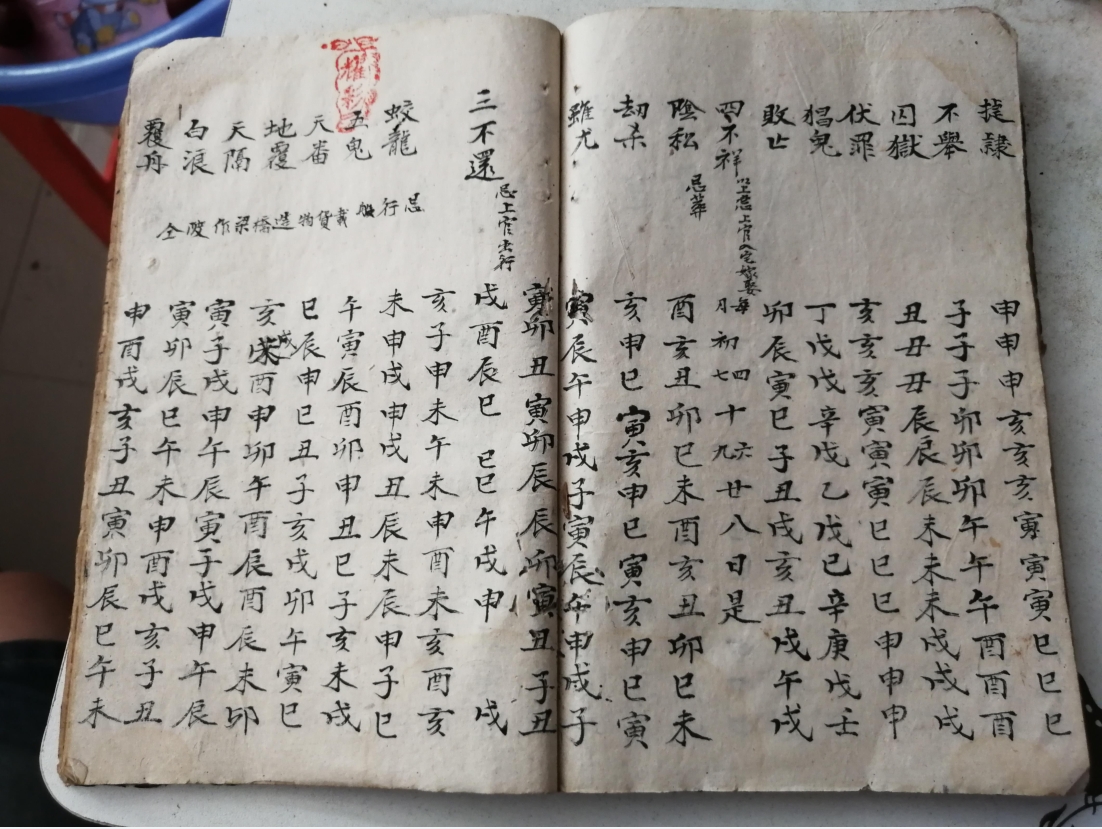 捷隸 申申申亥亥亥寅寅寅巳巳巳
不舉 子子子卯卯卯午午午酉酉酉
囚獄 丑丑丑辰辰辰未未未戌戌戌
伏罪 亥亥亥寅寅寅巳巳巳申申申
猖鬼 丁戊戊辛戊乙戊巳辛庚戊壬
敗亡 卯辰寅巳子丑戌亥丑戌午戌
四不祥 以上忌上官入宅嫁娶 每月初四七十六九廿八日是
陰私 忌葬 酉亥丑卯巳未酉亥丑卯巳未
劫杀 亥申巳寅亥申巳寅亥申巳寅
雖尤 寅辰午申戌子寅辰午申戌子
寅卯丑寅卯辰辰卯寅丑子丑
三不還 忌上官出行 戌酉辰巳 巳巳午戌申 戌
亥子申未午未申酉未亥酉亥
忌行船載貨物造橋梁作陂仝
蛟龍 未申戌申戌丑辰未辰申子巳
五鬼 午寅辰酉卯申丑巳子亥未戌
天番 巳辰申巳丑子亥戌卯午寅巳
地覆 亥戌酉申卯午酉辰酉辰未卯
天隔 寅子戌申午辰寅子戌申午辰
白浪 寅卯辰巳午未申酉戌亥子丑
覆舟 申酉戌亥子丑寅卯辰巳午未